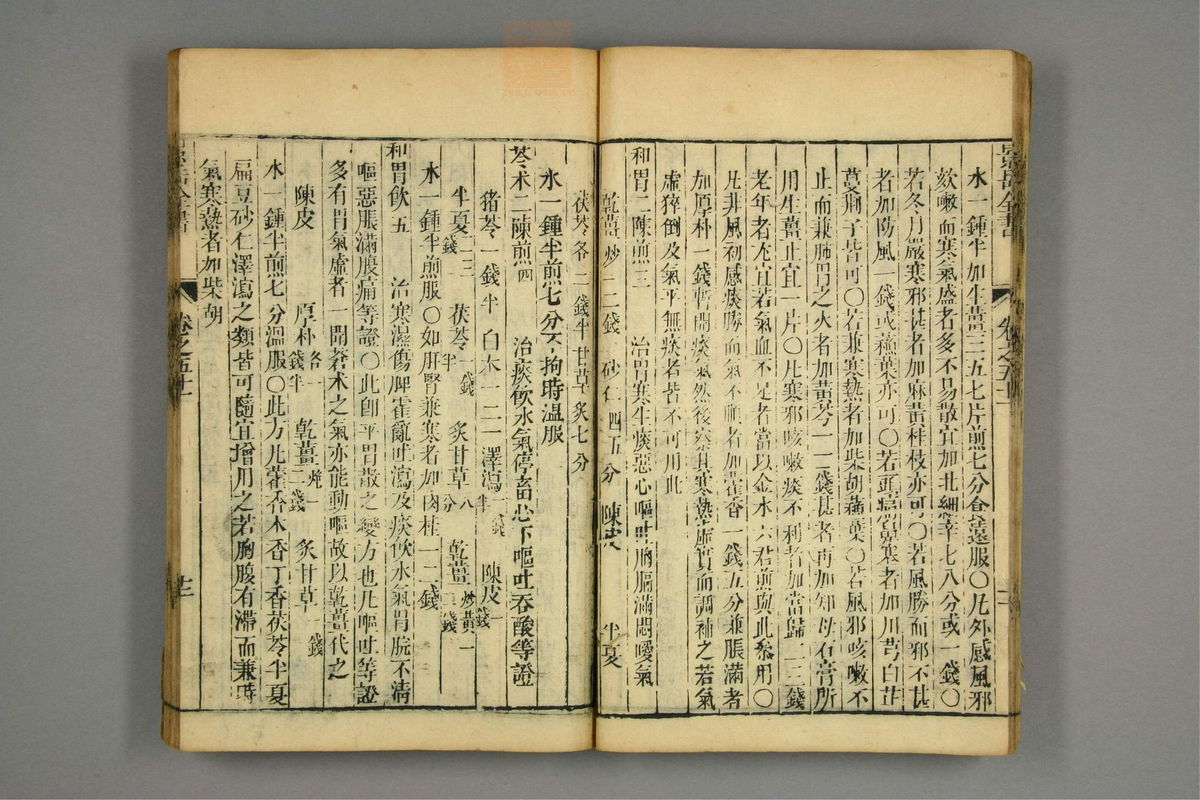 水一鍾半加生薑三五七片煎七分食遠服○凡外感風邪
欬嗽而寒氣盛者多不易散宜加北細辛七八分或一錢○
若冬月嚴寒邪甚者加麻黃桂枝亦可○若風勝而邪不甚
者加防風一錢或蘇葉亦可○若頭痛鼻寒者加川芎白芷
蔓荊子皆可○若兼寒熱者加柴胡蘇葉○若風邪咳嗽不
止而兼肺胃之火者加黃芩一二錢甚者再加知母石膏所
用生薑止宜一片○凡寒邪咳嗽痰不利者加當歸二三錢
老年者尤宜若氣血不足者當以金水六君煎與此參用○
凡非風初感痰勝而氣不順者加藿香一錢五分兼脹滿者
加厚朴一錢暫開痰氣然後察其寒熱虛實而調補之若氣
虛猝倒及氣平無痰者皆不可用此
和胃二陳煎三 治胃寒生痰惡心嘔吐胸膈滿悶噯氣
乾薑炒二錢 砂仁四五分 陳皮 半夏
茯苓各二錢半 甘草炙七分
水一鍾半煎七分不拘時温服
苓术二陳煎四 治痰飲水氣停蓄心下嘔吐吞酸等證
猪苓一錢半 白术一二 澤瀉一錢半 陳皮一錢
半夏二三錢 茯苓一錢半 炙甘草八分 乾薑炒黃一二錢
水一鍾半煎服○如肝腎兼寒者加肉桂一二錢
和胃飲五 治寒濕傷脾霍亂吐瀉及痰飲水氣胃脘不清
嘔惡脹滿腹痛等證○此卽平胃散之變方也凡嘔吐等證
多有胃氣虛者一聞蒼术之氣亦能動嘔故以乾薑代之
陳皮 厚朴各一錢半 乾薑炮一二錢 炙甘草一錢
水一鍾半煎七分溫服○此方凡藿香木香丁香茯苓半夏
扁豆砂仁澤瀉之類皆可隨宜增用之若胸腹有滯而兼時
氣寒熱者加柴胡
卷之五十一